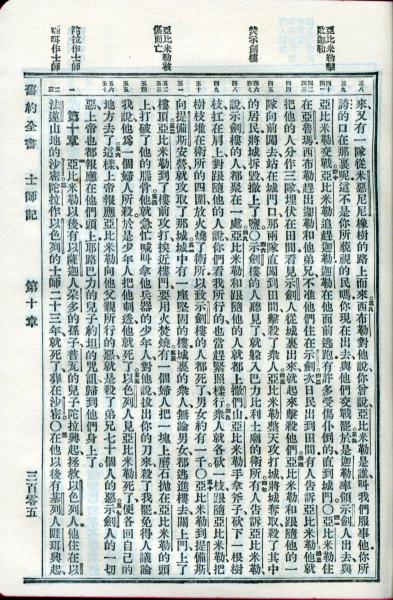 亞比米勒擊
敗迦勒
焚示劍樓
亞比米勒被
傷而亡
陀拉作士師
睚珥作士師
來又有一隊從米惡尼尼橡樹的路上而來西布勒對他說你曾說亞比米勒是誰叫我們服事他你所
誇的口在那裏呢這不是你所藐視的民嗎你現在出去與他們交戰罷於是迦勒率領示劍人出去與
亞比米勒交戰亞比米勒追趕迦勒迦勒在他面前逃跑有許多受傷仆倒的直到城門〇亞比米勒住
在亞魯瑪西布勒趕出迦勒和他弟兄不准他們住在示劍次日民出到田間有人告訴亞比米勒他就
把他的人分作三隊埋伏在田間看見示劍人從城裏出來就起來擊殺他們亞比米勒和跟隨他的一
隊向前闖去站在城門口那兩隊直闖到田間擊殺了衆人亞比米勒整天攻打城將城奪取殺了其中
的居民將城拆毀撒上了鹽〇示劍樓的人聽見了就躲入巴力比利土廟的衛所有人告訴亞比米勒
說示劍樓的人都聚在一處亞比米勒和跟隨他的人就都上撒們山亞比米勒手拿斧子砍下一根樹
枝扛在肩上對跟隨他的人說你們看我所行的也當趕緊照樣行衆人就各砍一枝跟隨亞比米勒把
樹枝堆在衛所的四圍放火燒了衛所以致示劍樓的人都死了男女約有一千〇亞比米勒到提備斯
向提備斯安營就攻取了那城城中有一座堅固的樓城裏的衆人無論男女都逃進樓去關上門上了
樓頂亞比米勒到了樓前攻打挨近樓門要用火焚燒有一個婦人把一塊上磨石拋在亞比米勒的頭
上打破了他的腦骨他就急忙喊叫拿他兵器的少年人對他說拔出你的刀來殺了我罷免得人議論
我說他爲一個婦人所殺於是少年人把他刺透他就死了以色列人見亞比米勒死了便各回自己的
地方去了這樣上帝報應亞比米勒向他父親所行的惡就是殺了弟兄七十個人的惡示劍人的一切
惡上帝也都報應在他們頭上耶路巴力的兒子約坦的咒詛歸到他們身上了
第十章 亞比米勒以後有以薩迦人朵多的孫子普瓦的兒子陀拉興起拯救以色列人他住在以
法蓮山地的沙密陀拉作以色列的士師二十三年就死了葬在沙密〇在他以後有基列人睚珥興起
舊約全書 士師記 第十章 三百零五